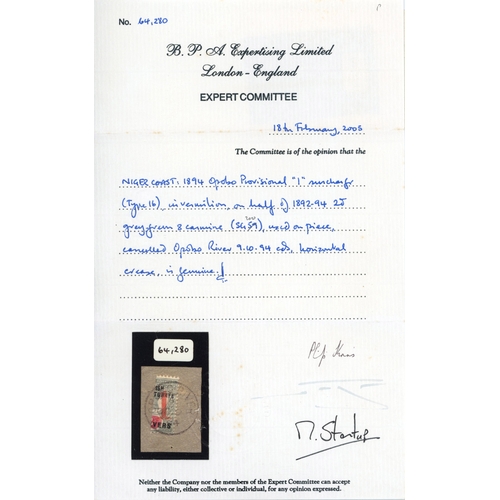 No. 64,280
B. P. A. Expertising Limited
London - England
EXPERT COMMITTEE
18th February, 2005
The Committee is of the opinion that the
NIGER COAST. 1894 Opobo Provisional "1" surcharge
(Type 16), in vermilion, on half of 1892-94 2d
grey-green & carmine (SG 59), used on piece,
cancelled Opobo River 9.10.94 cds, horizontal
crease, is genuine.
64,280
M. Startup
Neither the Company nor the members of the Expert Committee can accept
any liability, either collective or individual, for any opinion expressed.